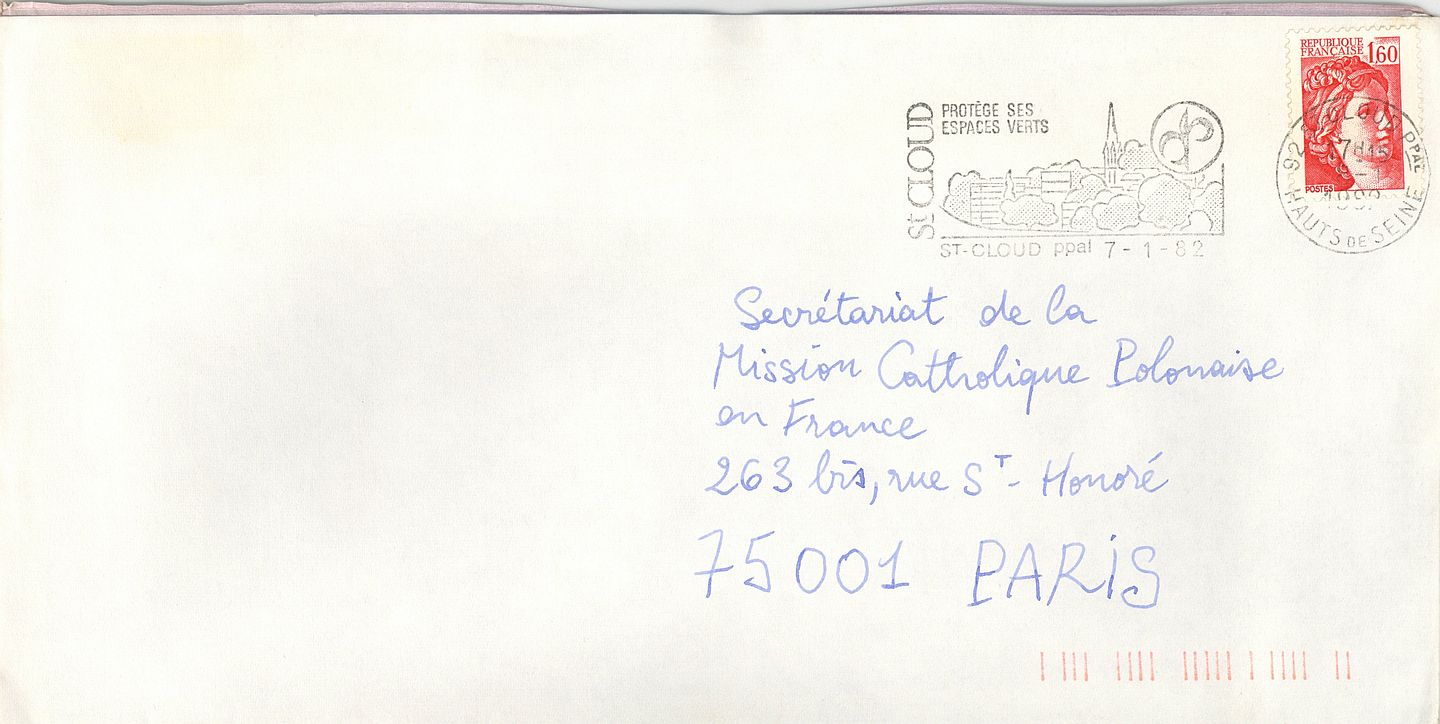 REPUBLIQUE
FRANÇAISE 1,60
POSTES
St CLOUD
PROTÈGE SES
ESPACES VERTS
ST-CLOUD ppal 7-1-82
92 ST CLOUD PPAL
HAUTS DE SEINE
Secrétariat de la
Mission Catholique Polonaise
en France
263 bis, rue Sᵀ- Honoré
75001 PARIS